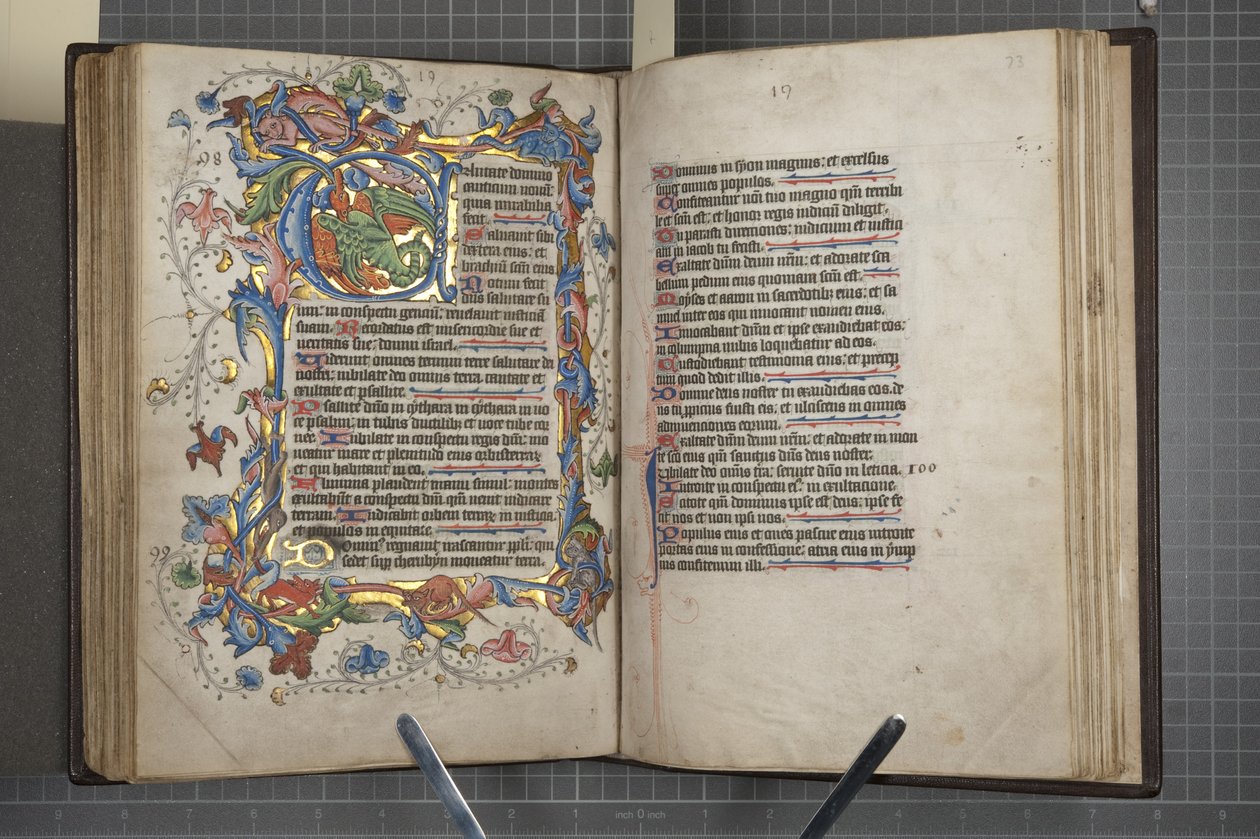 19
98
antate domino
canticum nouu:
quia mirabilia
fecit.
Saluauit sibi
dextera eius: et
brachiu scm eius
Notum fecit
dns salutare su
um: in conspectu gentiu: reuelauit iusticia
suam. Recordatus est misericordie sue et
ueritatis sue: domui israel.
Uiderunt omnes termini terre salutare dei
nostri: iubilate deo omnis terra, cantate et
exultate et psallite.
Psallite dno in cythara in cythara in uo
ce psalmi: in tubis ductilib; et uoce tube cor
nee. Iubilate in conspectu regis dni: mo
ueatur mare et plenitudo eius orbis terrar
et qui habitant in eo.
Flumina plaudent manu simul: montes
exultabut a conspectu dni: qm uenit iudicare
terram. Iudicabit orbem terrar in iusticia
et populos in equitate.
99
Dominus regnauit irascantur ppli: qui
sedet sup cherubyn moueatur terra.
73
19
Dominus in syon magnus: et excelsus
super omnes populos.
Confiteantur noi tuo magno qm terribi
le et scm est: et honor regis iudiciu diligit.
Tu parasti directiones: iudicium et iustici
am in iacob tu fecisti.
Exaltate dum deum nrm: et adorate sca
bellum pedum eius quoniam scm est.
Moyses et aaron in sacerdotib; eius: et sa
muel inter eos qui inuocant nomen eius.
Inuocabant dnm et ipse exaudiebat eos:
in columpna nubis loquebatur ad eos.
Custodiebant testimonia eius: et precep
tum quod dedit illis.
Domine deus noster tu exaudiebas eos. de
us tu ppicius fuisti eis: et ulciscens in omnes
adinuenciones eorum.
Exaltate dnm deum nrm: et adorate in mon
te sco eius qm sanctus dns deus noster.
Iubilate deo omnis tra: seruite dno in leticia. 100
Introite in conspectu ei9: in exultacione.
Scitote qm dominus ipse est deus: ipse fe
cit nos et non ipsi nos.
Populus eius et oues pascue eius introite
portas eius in confessione: atria eius in ymp
nis confitemini illi.